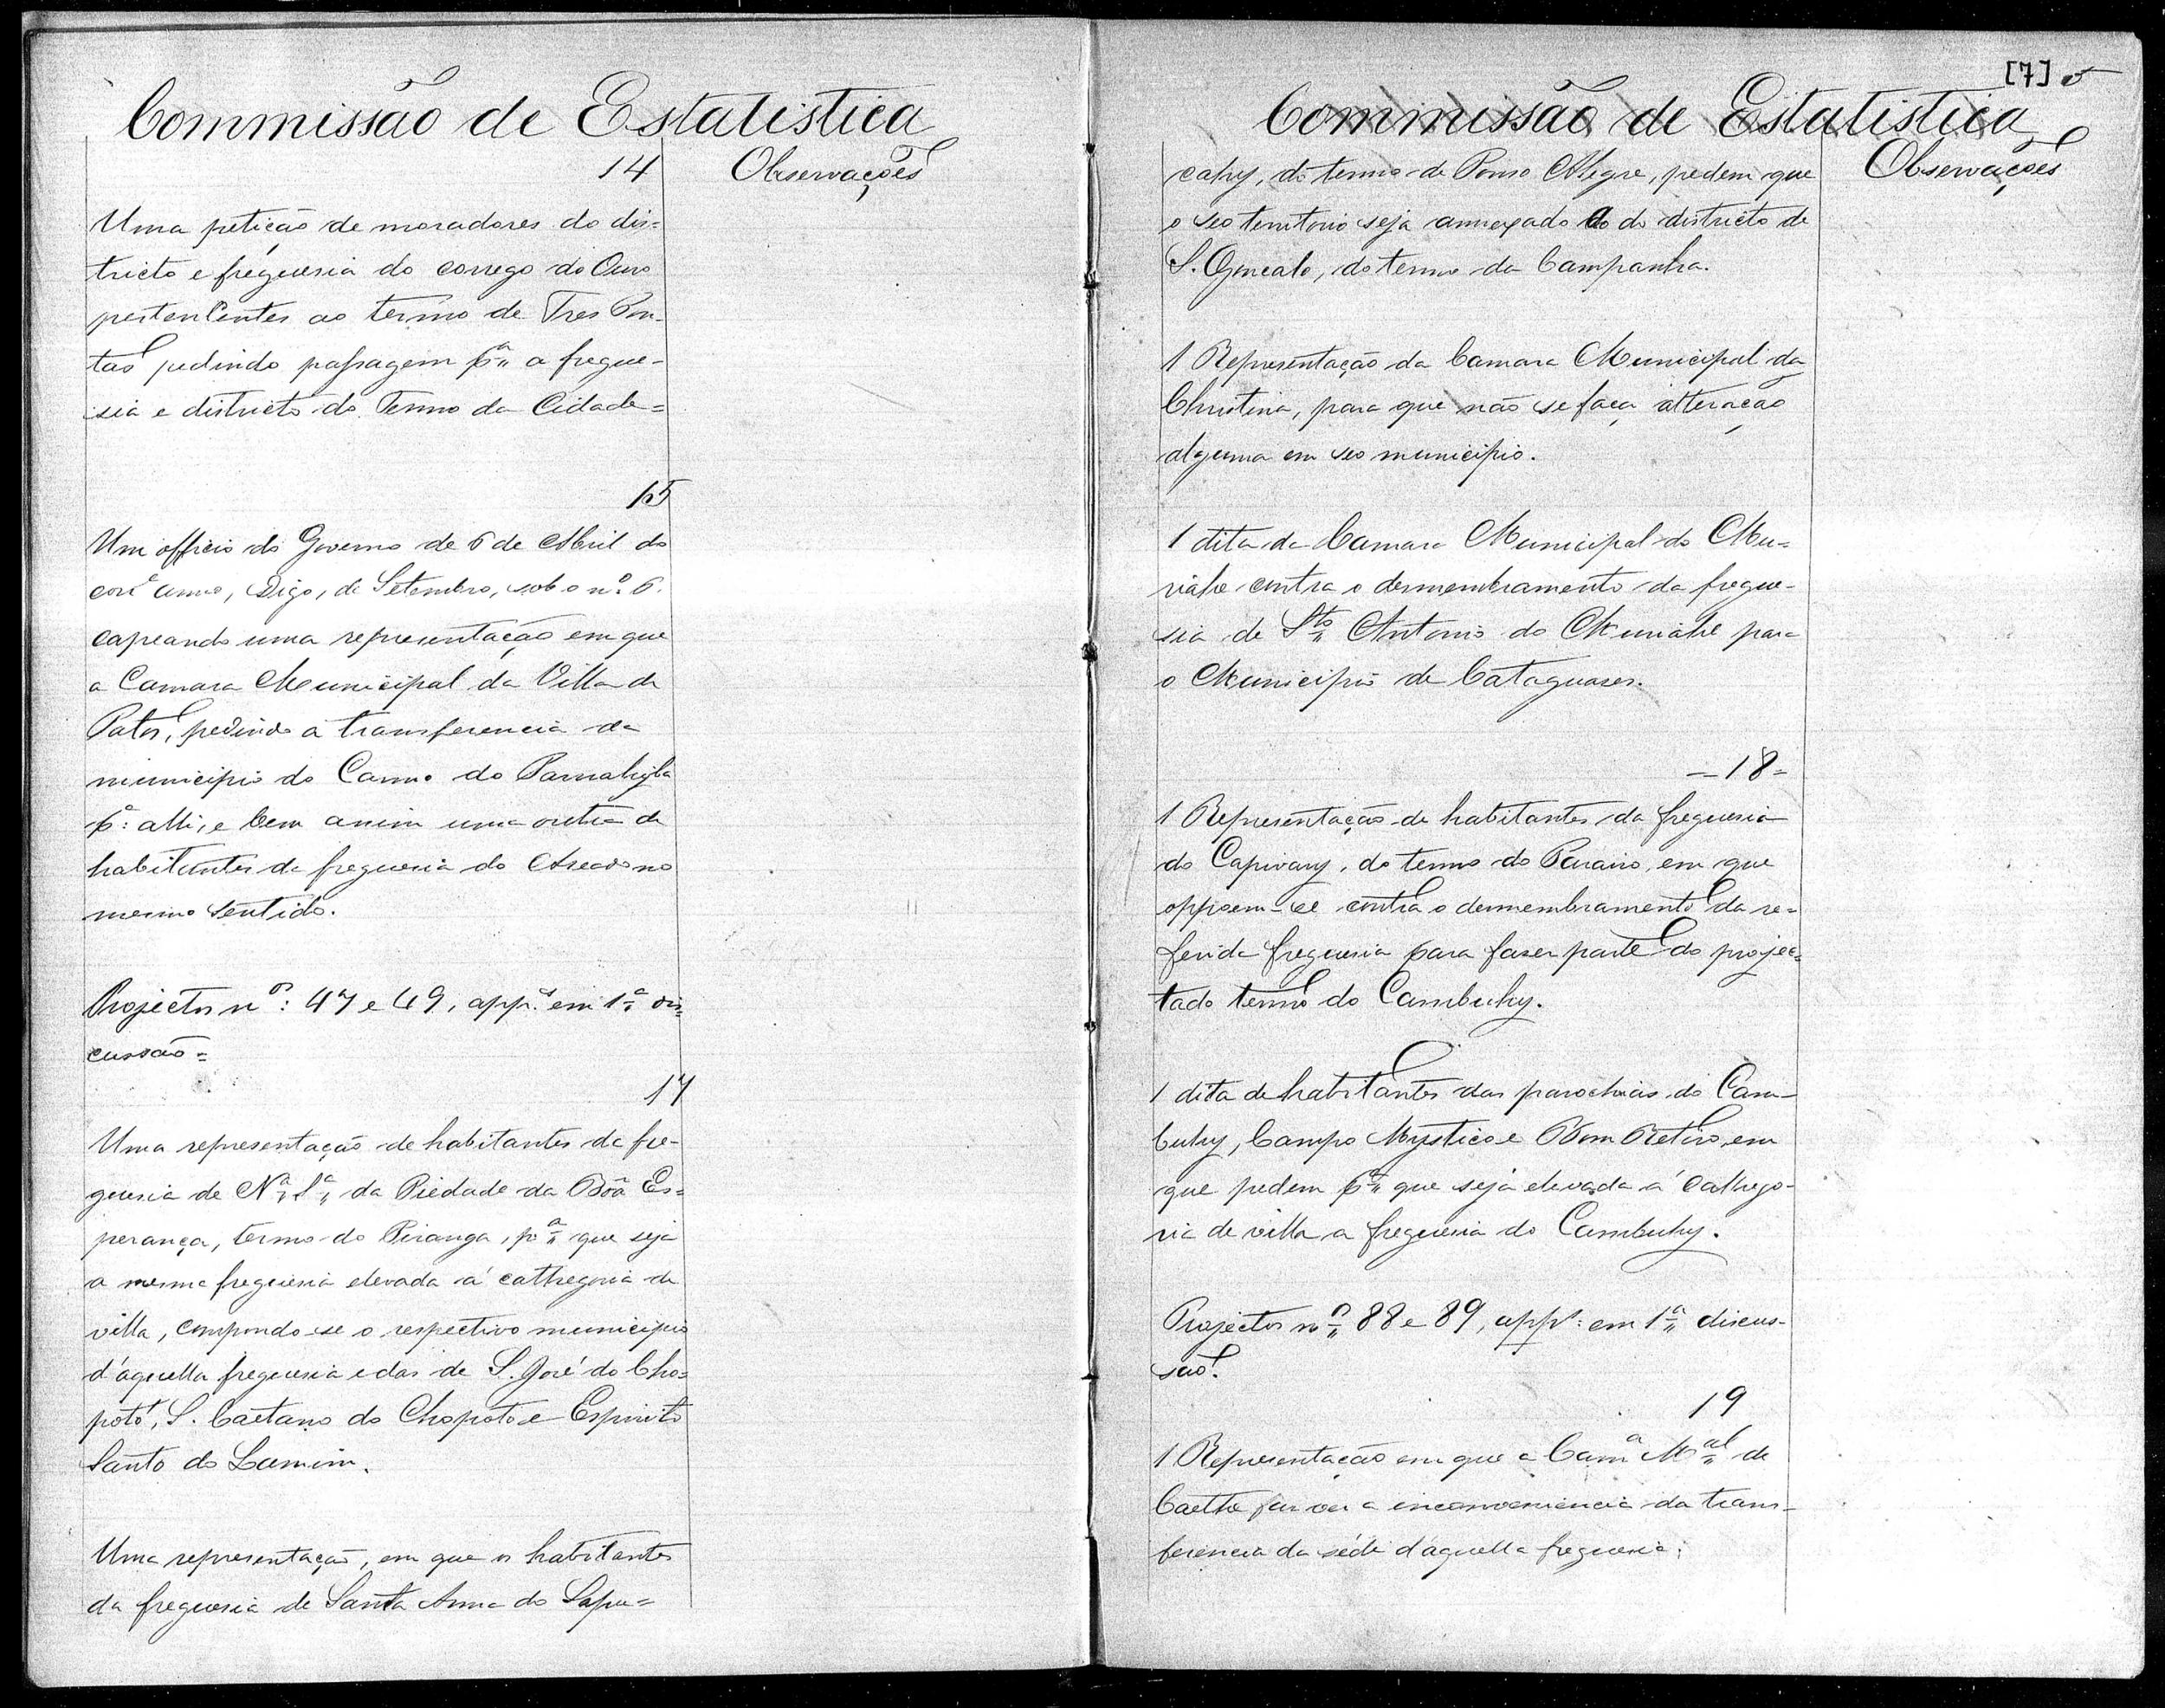 Commissão de Estatistica
14
Observações
Uma petição de moradores do dis=
tricto e freguesia do corrego do Ouro
pertencentes ao termo de Tres Pon-
tas pedindo passagem pª a fregue-
sia e districto do Termo da Cidade=
15
Um officio do Governo de 6 de Abril do
corr.e anno, Digo, de Setembro, sob o nº 6.
capeando uma representação em que
a Camara Municipal da Villa de
Patos, pedindo a transferencia da
municipio do Carmo do Parnahyba
pª: alli, e bem assim uma outra de
habitantes da freguesia do Areado no
mesmo sentido.
Projectos nos: 47 e 49, app.s em 1ª dis=
cussão=
17
Uma representação de habitantes da fre-
guesia de Nª Sª da Piedade da Bôa Es=
perança, termo do Piranga, pª que seja
a mesma freguesia elevada á cathegoria de
villa, compondo-se o respectivo municipio
d'aquella freguesia e das de S. José do Cho=
potó, S. Caetano do Chopoto e Espirito
Santo do Lamim.
Uma representação, em que os habitantes
da freguesia de Santa Anna do Sapu=
[7]
Commissão de Estatistica
Observações
cahy, do termo de Pouso Alegre, pedem que
o seo territorio seja annexado ao do districto de
S. Gonçalo, do termo da Campanha.
1 Representação da Camara Municipal da
Christina, para que não se faça alteração
alguma em seo municipio.
1 dita da Camara Municipal do Mu-
riahe contra o desmembramento da fregue-
sia de Sto Antonio do Muriahé para
o Municipio de Cataguases.
=18=
1 Representação de habitantes da freguesia
do Capivary, do termo do Paraiso, em que
oppoem-se contra o desmembramento da re=
ferida freguesia para fazer parte do projec=
tado termo do Cambuhy.
1 dita de habitantes das parochias do Cam-
buhy, Campo Mystico e Bom Retiro, em
que pedem pª que seja elevada á cathego-
ria de villa a freguesia do Cambuhy.
Projectos nos 88 e 89, app.s: em 1ª discus-
são.
19
1 Representação em que a Camª Mal de
Caethe faz ver a inconveniencia da trans-
ferencia da séde d'aquella freguesia.